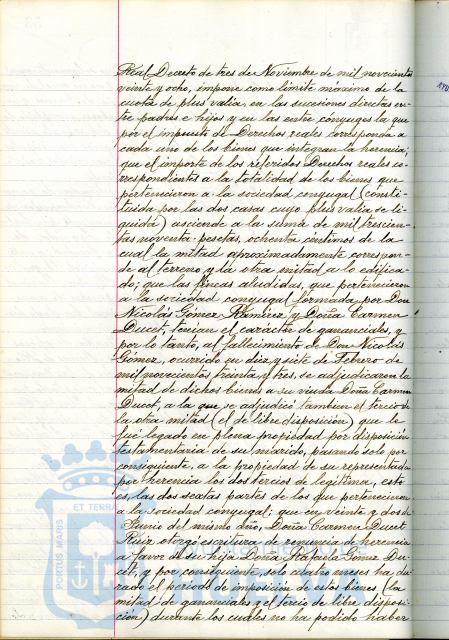 Real Decreto de tres de Noviembre de mil novecientos
veinte y ocho, impone como límite máximo de la
cuota de plus valia, en las sucesiones directas en-
tre padres e hijos y en las entre conyuges la que
por el impuesto de Derechos reales corresponda a
cada uno de los bienes que integran la herencia;
que el importe de los referidos Derechos reales co-
rrespondientes a la totalidad de los bienes que
pertenecieron a la sociedad conyugal (consti-
tuida por las dos casas cuyo plus valia se li-
quida) asciende a la suma de mil trescien-
tas noventa pesetas, ochenta centimos de la
cual la mitad aproximadamente correspon-
de al terreno y la otra mitad a lo edifica-
do; que las fincas aludidas, que pertenecieron
a la sociedad conyugal formada por Don
Nicolás Gómez Ramírez y Doña Carmen
Ducet, tenian el carácter de gananciales, y
por lo tanto, al fallecimiento de Don Nicolás
Gómez, ocurrido en diez y siete de Febrero de
mil novecientos treinta y tres, se adjudicaron la
mitad de dichos bienes a su viuda Doña Carmen
Ducet, a la que se adjudicó tambien el tercio de
la otra mitad (el de libre disposición) que le
fué legado en plena propiedad por disposición
testamentaria de su marido, pasando solo por
consiguiente, a la propiedad de su representada
por herencia los dos tercios de legítima, esto
es, las dos sextas partes de los que pertenecieron
a la sociedad conyugal; que en veinte y dos de
Junio del mismo año, Doña Carmen Ducet
Ruiz otorgó escritura de renuncia de herencia
a favor de su hija Doña Rafaela Gómez Du-
cet, y por consiguiente, solo cuatro meses ha du-
rado el periodo de imposición de estos bienes (la
mitad de gananciales y el tercio de libre disposi-
ción) durante los cuales no ha podido haber
PORTUS MARIS
ET TERRA